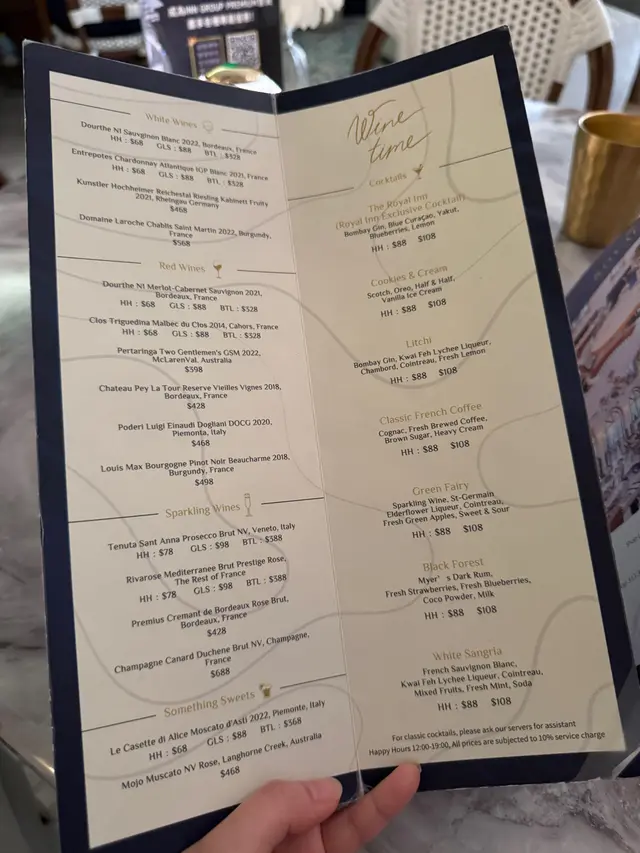 White Wines
Dourthe N1 Sauvginen Blanc 2022, Bordeaux, France
HH : $68 GLS : $88 BTL : $328
Entrepotes Chardonnay Atlantique IGP Blanc 2021, France
HH : $68 GLS : $88 BTL : $328
Kunstler Hochheimer Reichestal Riesling Kabinett Fruity
2021, Rheingau Germany
$468
Domaine Laroche Chablis Saint Martin 2022, Burgundy,
France
$568
Red Wines
Dourthe N1 Merlot-Cabernet Sauvignon 2021,
Bordeaux, France
HH : $68 GLS : $88 BTL : $328
Clos Triguedina Malbec du Clos 2014, Cahors, France
HH : $68 GLS : $88 BTL : $328
Pertaringa Two Gentlemen's GSM 2022,
McLarenVal. Australia
$398
Chateau Pey La Tour Reserve Vieilles Vignes 2018,
Bordeaux, France
$428
Poderi Luigi Einaudi Dogliani DOCG 2020,
Piemonta, Italy
$468
Louis Max Bourgogne Pinot Noir Beaucharme 2018,
Burgundy, France
$498
Sparkling Wines
Tenuta Sant Anna Prosecco Brut NV, Veneto, Italy
HH : $78 GLS : $98 BTL : $388
Rivarose Mediterranee Brut Prestige Rose,
The Rest of France
HH : $78 GLS : $98 BTL : $388
Premius Cremant de Bordeaux Rose Brut,
Bordeaux, France
$428
Champagne Canard Duchene Brut NV, Champagne,
France
$688
Something Sweets
Le Casette di Alice Moscato d'Asti 2022, Piemonte, Italy
HH : $68 GLS : $88 BTL : $368
Mojo Muscato NV Rose, Langhorne Creek, Australia
$468
Wine
time
Cocktails
The Royal Inn
(Royal Inn Exclusive Cocktail)
Bombay Gin, Blue Curaçao, Yakut,
Blueberries, Lemon
HH : $88 $108
Cookies & Cream
Scotch, Oreo, Half & Half,
Vanilla Ice Cream
HH : $88 $108
Litchi
Bombay Gin, Kwai Feh Lychee Liqueur,
Chambord, Cointreau, Fresh Lemon
HH : $88 $108
Classic French Coffee
Cognac, Fresh Brewed Coffee,
Brown Sugar, Heavy Cream
HH : $88 $108
Green Fairy
Sparkling Wine, St-Germain
Elderflower Liqueur, Cointreau,
Fresh Green Apples, Sweet & Sour
HH : $88 $108
Black Forest
Myer's Dark Rum,
Fresh Strawberries, Fresh Blueberries,
Coco Powder, Milk
HH : $88 $108
White Sangria
French Sauvignon Blanc,
Kwai Feh Lychee Liqueur, Cointreau,
Mixed Fruits, Fresh Mint, Soda
HH : $88 $108
For classic cocktails, please ask our servers for assistant
Happy Hours 12:00-19:00, All prices are subjected to 10% service charge